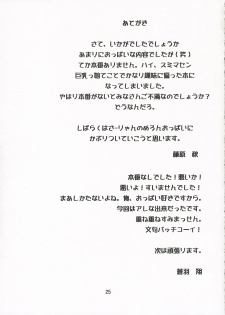 あとがき
さて、いかがでしたでしょうか
あまりにおっぱいな内容でしたが(笑)
てか本番ありません。ハイ、スミマセン
巨乳っ娘てことでかなり趣味に偏った本に
なってしまいました。
やはり本番がないとみなさんご不満なのでしょうか?
どうなんだろ。
しばらくはさーりゃんのめろんおっぱいに
かぶりついていこうと思います。
藤原 秋
本番なしでした!悪いか!
悪いよ!すいませんでした!
まあしかたないよね。俺、おっぱい好きですから。
今回はアレな出来だったです。
重ね重ねすみまっせん。
文句バッチコーイ!
次は頑張ります。
翔
25